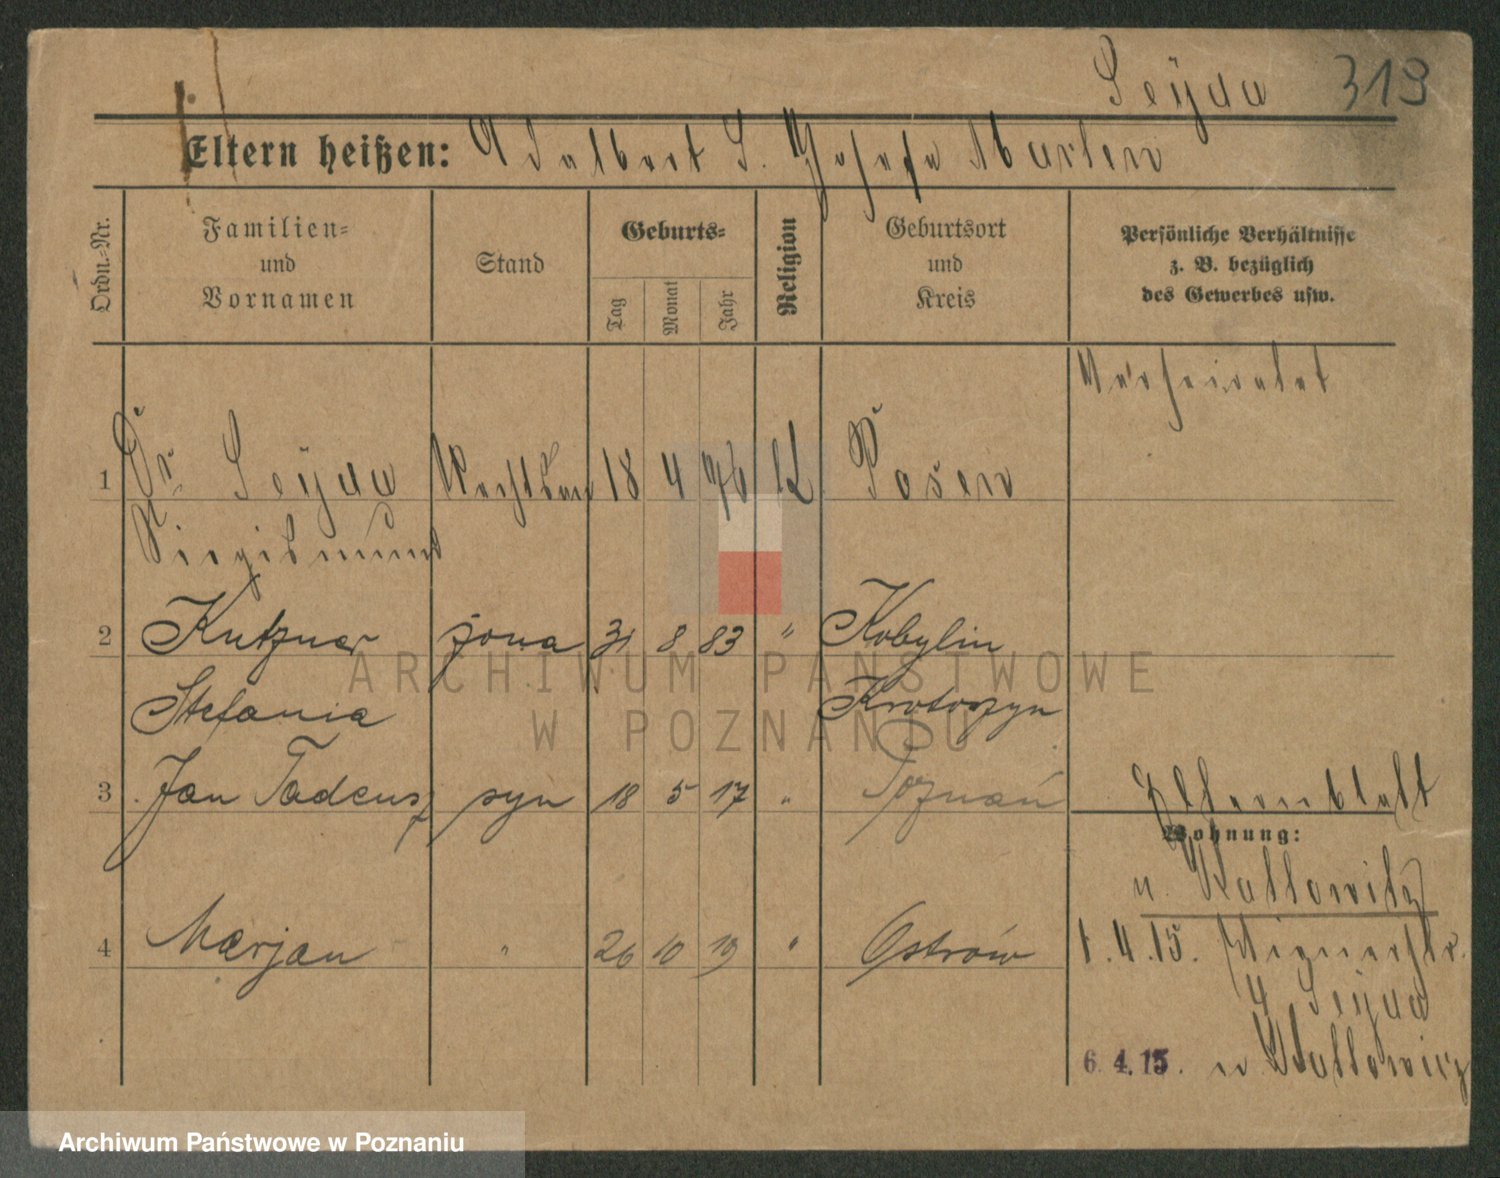 Seÿda 319
Eltern heißen: Adalbert S. Josefa Marten
Ordn.-Nr.
Familien- und Vornamen
Stand
Geburts-
Tag
Monat
Jahr
Religion
Geburtsort und Kreis
Persönliche Verhältnisse z. B. bezüglich des Gewerbes usw.
Verheiratet
1 Dr. Seÿda 18 4 76 K Posen
Siegismund
2 Kutzner żona 31 8 83 " Kobylin
Stefania Krotoszyn
3 Jan Tadeusz syn 18 5 17 " Poznań
Elternblatt
Wohnung:
n. Kattowitz
4 Marjan " 26 10 19 " Ostrów
1.4.15.
4 Seÿda
6.4.15. n Kattowitz
ARCHIWUM PAŃSTWOWE
W POZNANIU
Archiwum Państwowe w Poznaniu